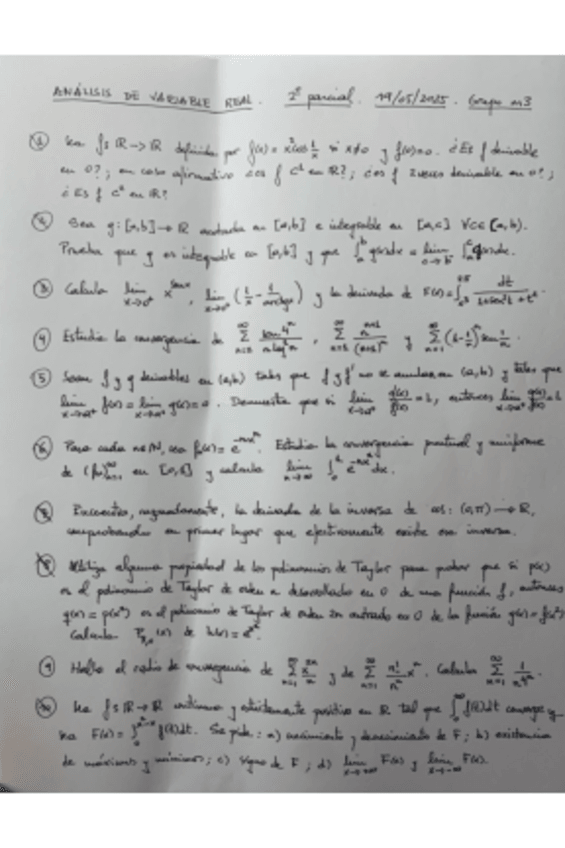 ANÁLISIS DE VARIABLE REAL. 2º parcial. 19/05/2025. Grupo m3
① Sea f: ℝ → ℝ definida por f(x) = cos 1/x si x≠0 y f(0)=0. ¿Es f derivable
en 0?; en caso afirmativo ¿es f C¹ en ℝ?; ¿es f 2 veces derivable en 0?;
¿Es f C² en ℝ?
Sea g: [a,b] → ℝ acotada en [a,b] e integrable en [a,c] ∀c∈(a,b).
Prueba que g es integrable en [a,b] y que ∫ₐᵇ g(x)dx = lim c→b⁻ ∫ₐᶜ g(x)dx.
③ Calcula lim x→0⁺ x^senx, lim x→0⁺ (1/x - 1/arctgx) y la derivada de F(x) =
④ Estudia la convergencia de
⑤ Sean f y g derivables en (a,b) tales que f y f' no se anulan en (a,b) y tales que
lim x→a⁺ f(x) = lim x→a⁺ g(x) = 0. Demuestra que si lim x→a⁺ g'(x)/f'(x) = L, entonces lim x→a⁺ g(x)/f(x) = L
⑥ Para cada n∈ℕ, sea fₙ(x) = Estudia la convergencia puntual y uniforme
de (fₙ)ₙ₌₁^∞ en y calcula lim n→∞
Encuentra, razonadamente, la derivada de la inversa de cos: (0,π) → ℝ,
comprobando en primer lugar que efectivamente existe esa inversa.
Utiliza alguna propiedad de los polinomios de Taylor para probar que si p(x)
es el polinomio de Taylor de orden n desarrollado en 0 de una función f, entonces
q(x) = p(x²) es el polinomio de Taylor de orden 2n centrado en 0 de la función g(x) = f(x²).
Calcula de h(x) =
⑨ Halla el radio de convergencia de ∑ₙ₌₁^∞ y de ∑ₙ₌₁^∞ n!/nⁿ xⁿ. Calcula ∑ₙ₌₁^∞ 1/n4ⁿ.
⑩ Sea f: ℝ → ℝ continua y estrictamente positiva en ℝ tal que ∫₀^∞ f(t)dt converge y
sea F(x) = f(t)dt. Se pide: a) crecimiento y decrecimiento de F; b) existencia
de máximos y mínimos; c) signo de F; d) lim x→+∞ F(x) y lim x→-∞ F(x).